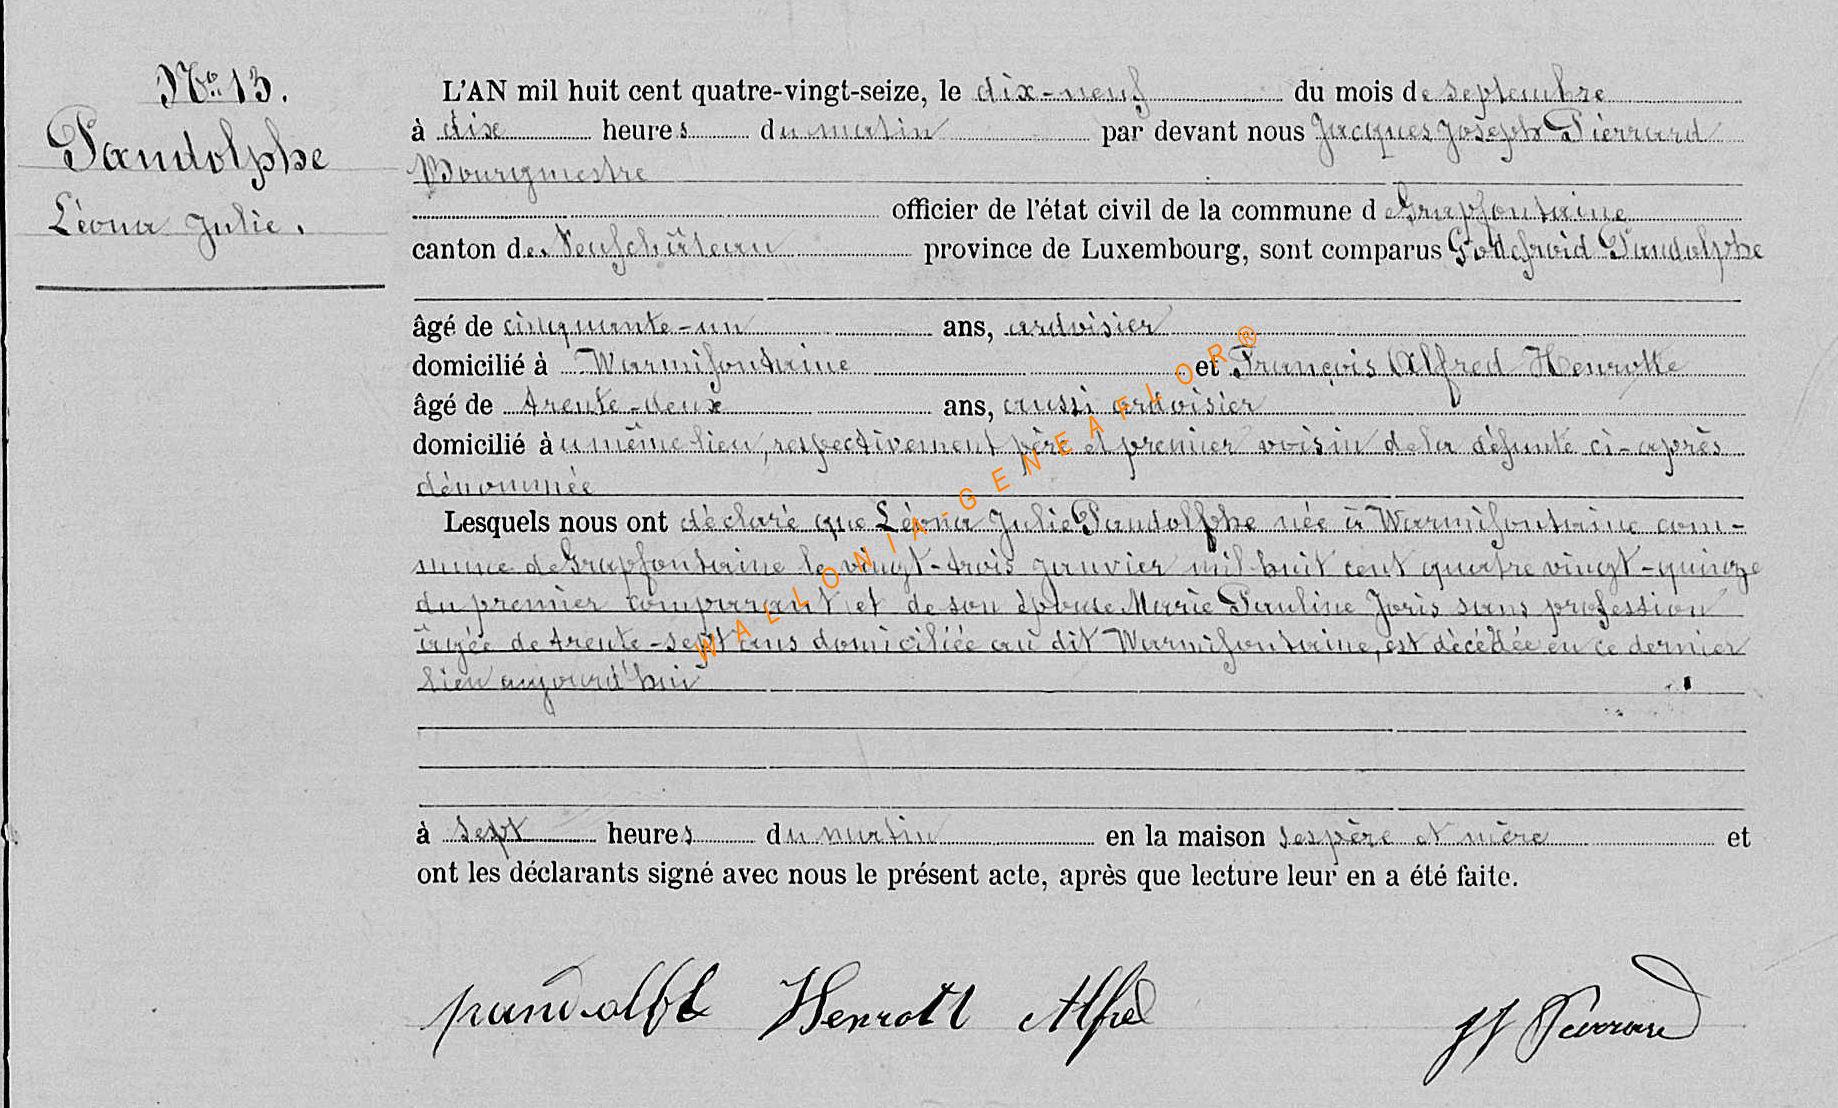 N° 13.
Pandolphe
Léona Julie.
L'AN mil huit cent quatre-vingt-seize, le dix-neuf du mois de septembre
à dix heures du matin par devant nous Jacques Joseph Piérrard
Bourgmestre
officier de l'état civil de la commune de Grapfontaine
canton de Neufchâteau province de Luxembourg, sont comparus Godefroid Pandolphe
âgé de cinquante-un ans, ardoisier
domicilié à Warmifontaine et François Alfred Henrotte
âgé de trente-deux ans, aussi ardoisier
domicilié au même lieu, respectivement père et premier voisin de la défunte ci-après
dénommée
Lesquels nous ont déclaré que Léona Julie Pandolphe née à Warmifontaine com-
mune de Grapfontaine le vingt-trois janvier mil huit cent quatre vingt-quinze
du premier comparant et de son épouse Marie Pauline Joris sans profession
âgée de trente-sept ans domiciliée au dit Warmifontaine, est décédée en ce dernier
lieu aujourd'hui
à sept heures du matin en la maison ses père et mère et
ont les déclarants signé avec nous le présent acte, après que lecture leur en a été faite.
pandolfe Henrott Alfred JJ Pierrard
WALLONIA-GENEAFLOR®